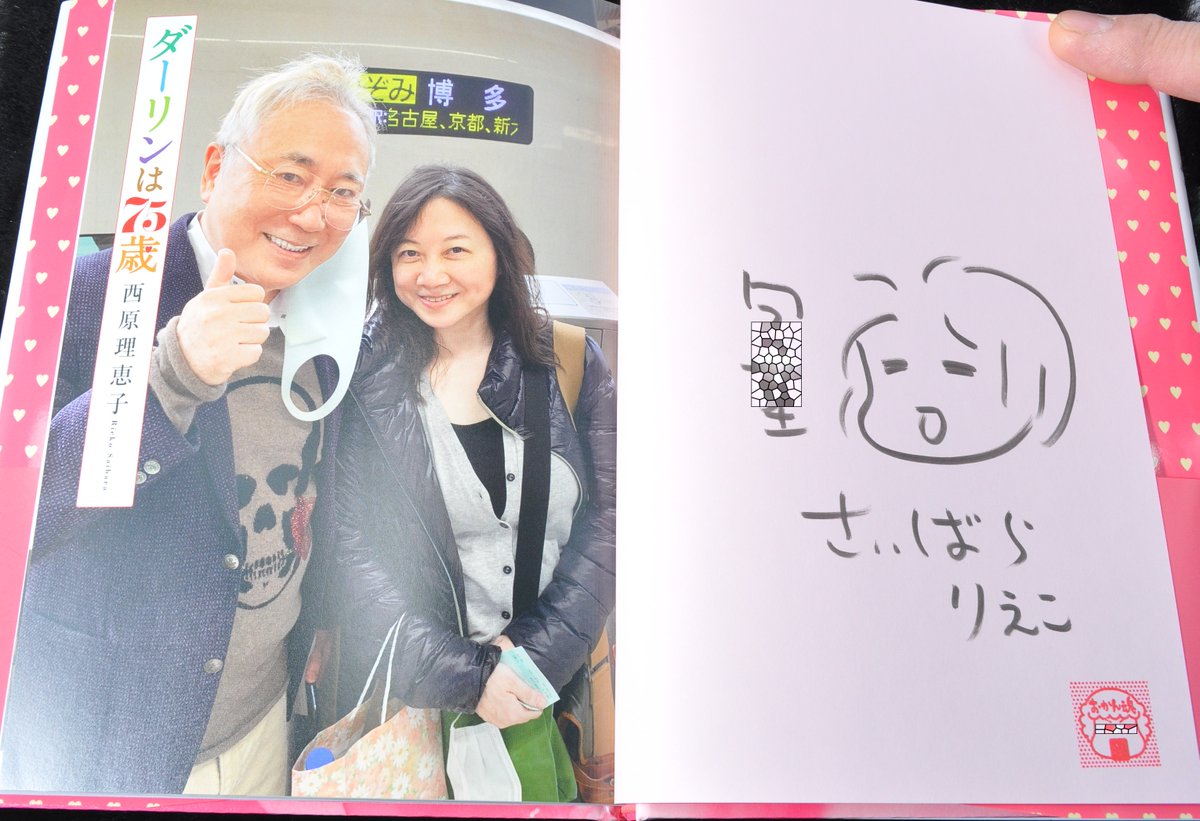 ダーリンは75歳
西原理恵子
Rieko Saibara
ぞみ 博多
名古屋、京都、新
さいばら
りえこ
おかん魂